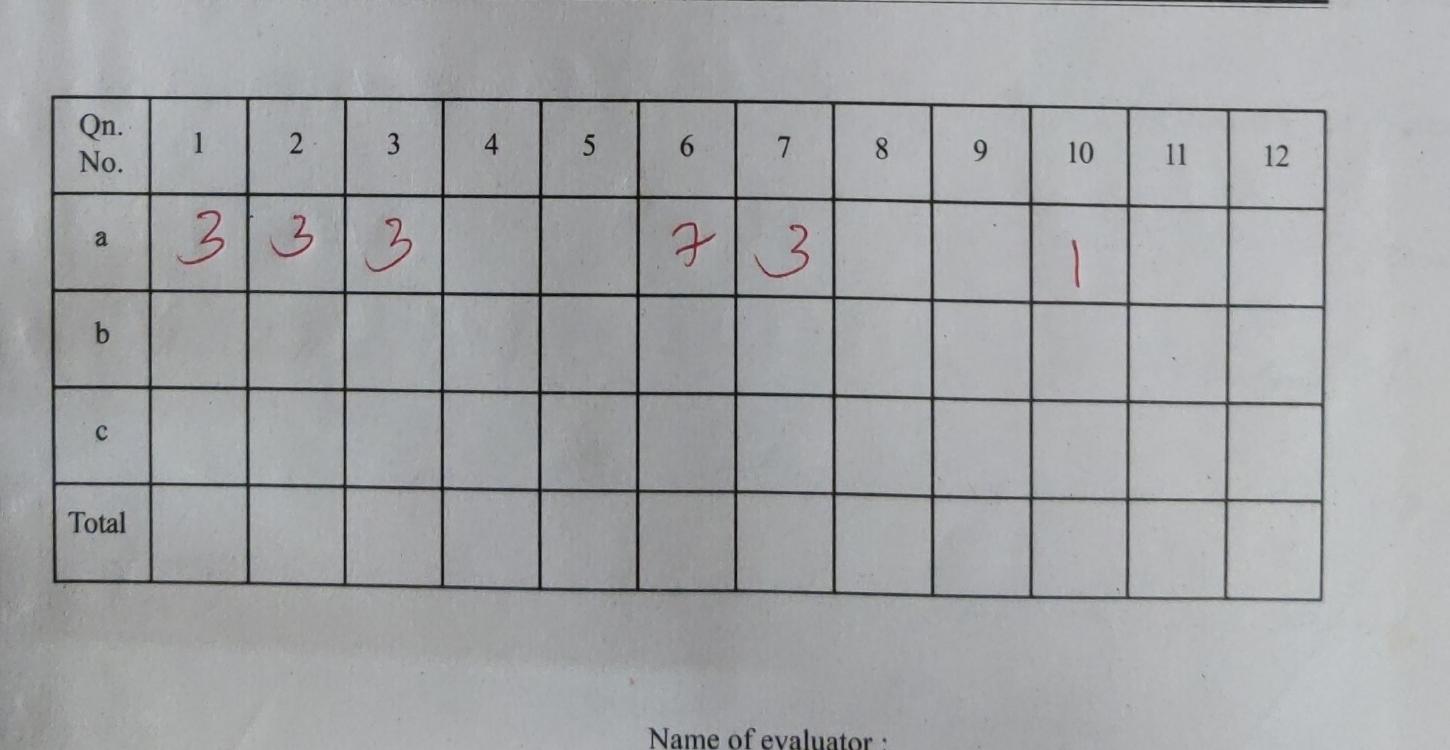 Qn. No. 1 2 3 4 5 6 7 8 9 10 11 12
a 3 3 3 7 3 1
b
c
Total
Name of evaluator :